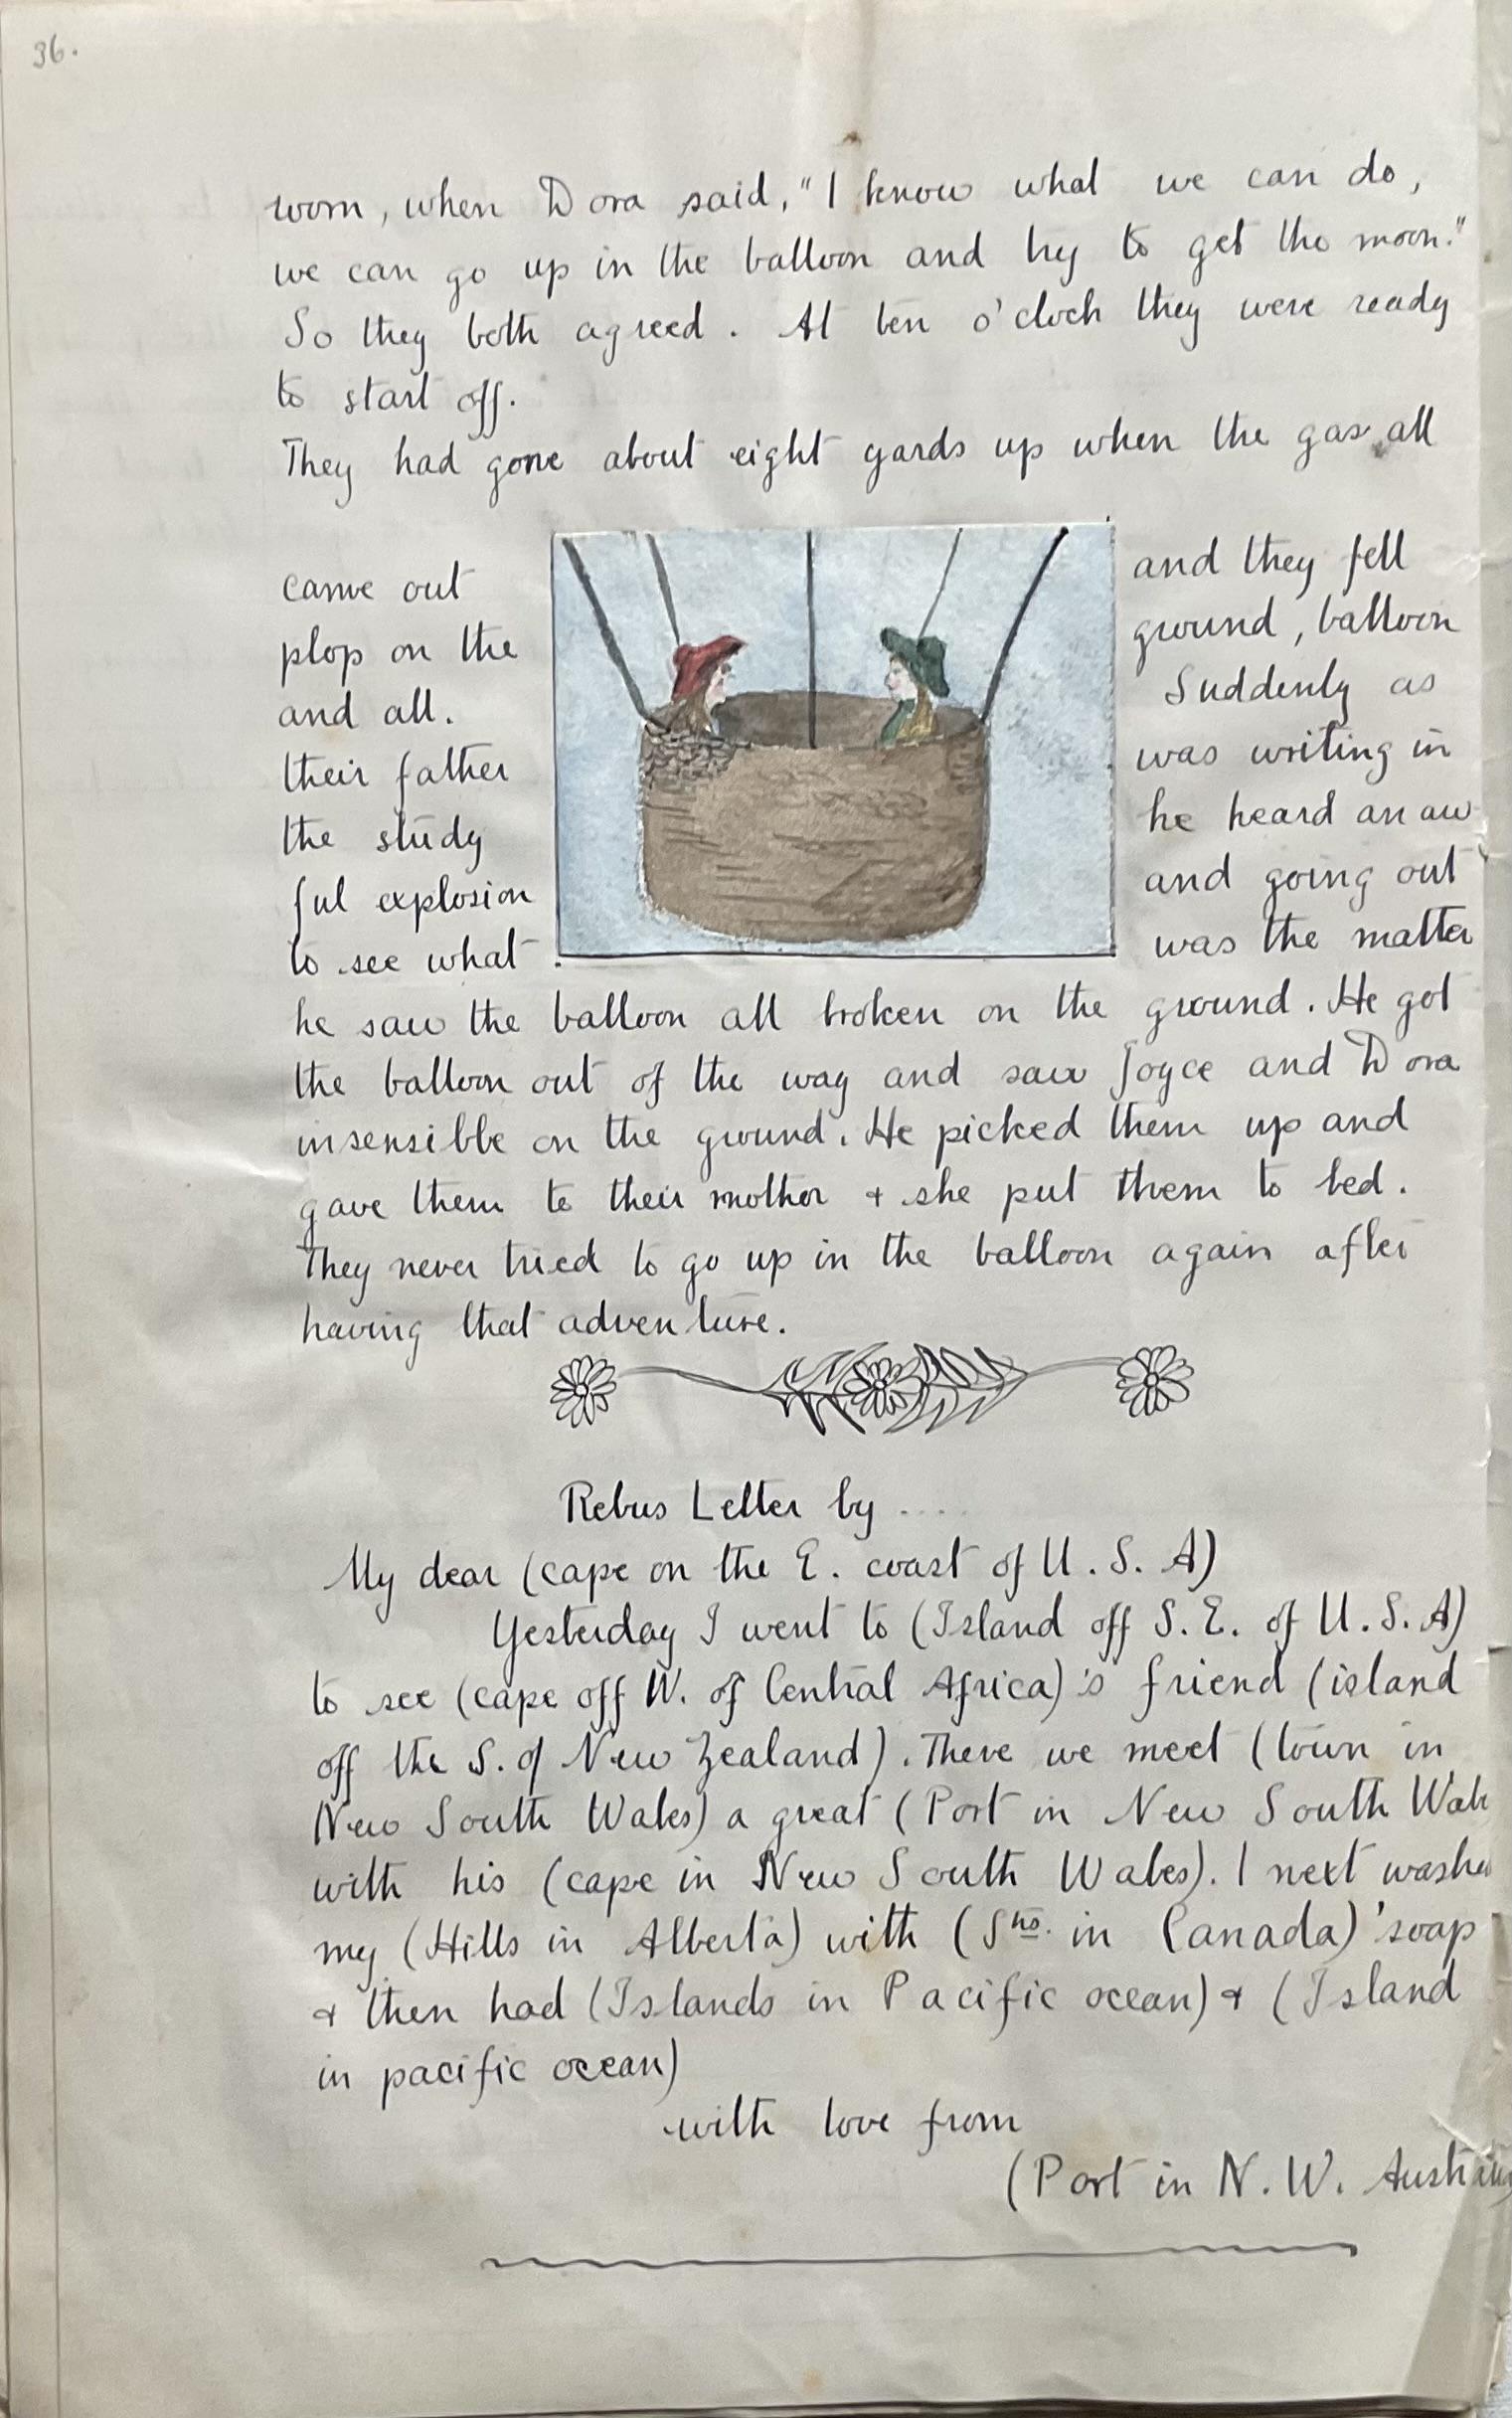 36.
worn, when Dora said, "I know what we can do,
we can go up in the balloon and try to get the moon."
So they both agreed. At ten o'clock they were ready
to start off.
They had gone about eight yards up when the gas all
came out and they fell
plop on the ground, balloon
and all. Suddenly as
their father was writing in
the study he heard an aw
ful explosion and going out
to see what was the matter
he saw the balloon all broken on the ground. He got
the balloon out of the way and saw Joyce and Dora
insensible on the ground. He picked them up and
gave them to their mother & she put them to bed.
They never tried to go up in the balloon again after
having that adventure.
Rebus Letter by ....
My dear (cape on the E. coast of U. S. A)
Yesterday I went to (Island off S. E. of U. S. A)
to see (cape off W. of Central Africa)'s friend (island
off the S. of New Zealand). There we meet (town in
New South Wales) a great (Port in New South Wale
with his (cape in New South Wales). I next washed
my (Hills in Alberta) with (Sns. in Canada) 'soap
& then had (Islands in Pacific ocean) & (Island
in pacific ocean)
with love from
(Port in N. W. Australia